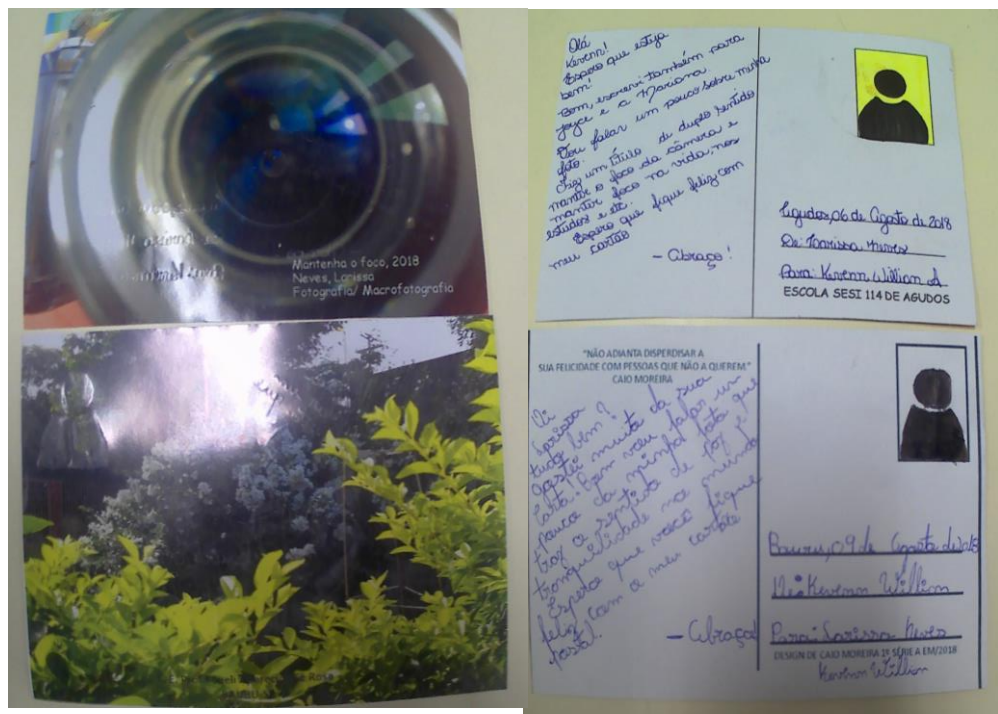 Mantenha o foco, 2018
Neves, Larissa
Fotografia/ Macrofotografia
Olá
Kevenn!
Espero que esteja
bem.
Bom, escrevi também para
Joyce e a Mariana.
Vou falar um pouco sobre minha
foto.
Fiz um título de duplo sentido
manter o foco da câmera e
manter foco na vida, nos
estudos e etc.
Espero que fique feliz com
meu cartão
- Abraço!
Agudos, 06 de Agosto de 2018
De: Larissa Neves
Para: Kevenn Willian A
ESCOLA SESI 114 DE AGUDOS
"NÃO ADIANTA DISPERDISAR A
SUA FELICIDADE COM PESSOAS QUE NÃO A QUEREM."
CAIO MOREIRA
Oi
Larissa
tudo bem?
Gostei muito da sua
carta. Bom vou falar um
pouco da minha foto que
traz o sentido de paz e
tranquilidade no mundo
Espero que você fique
feliz com o meu cartão
postal.
- Abraços!
Bauru, 09 de Agosto de 2018
De: Kevenn Willian
Para: Larissa Neves
DESIGN DE CAIO MOREIRA 1ª SÉRIE A EM/2018
Kevenn Willian